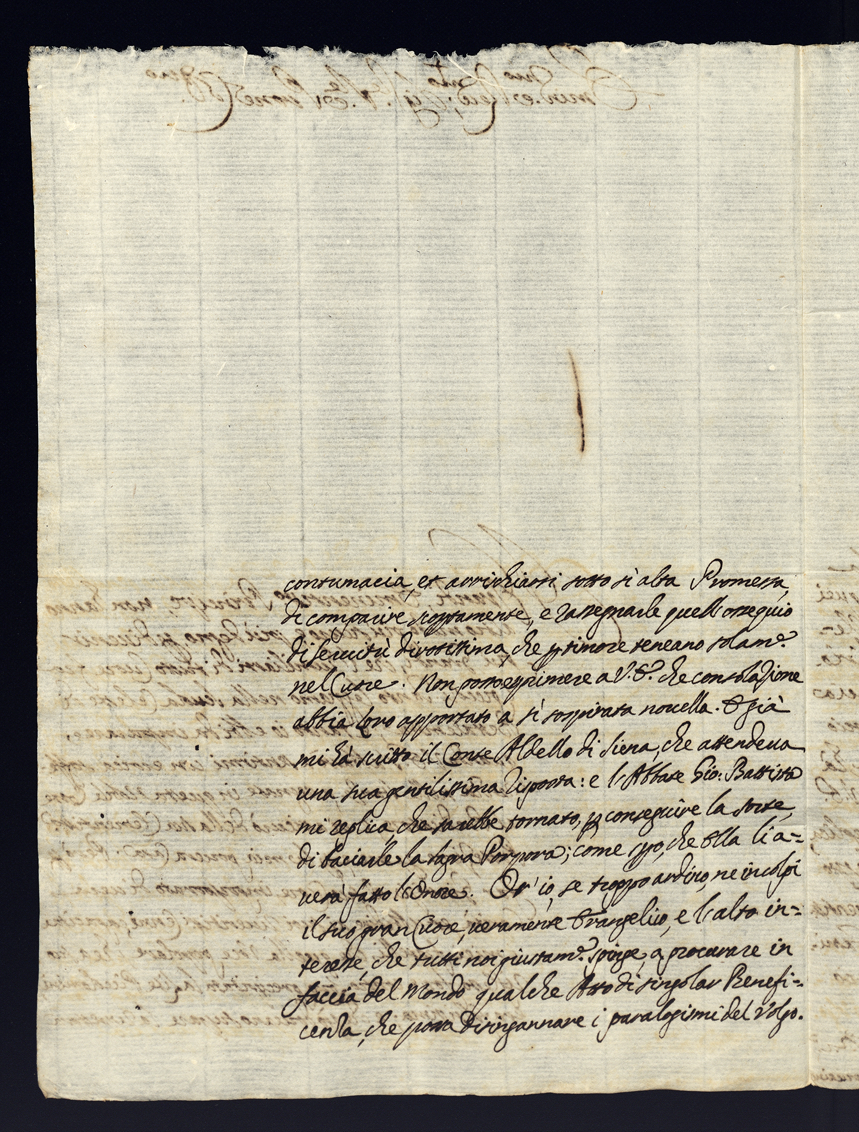 contumacia, et arrischiarsi sotto sì alta Promessa,
di comparire prontamente, e rassegnarle quell'ossequio
di servitù divotissima, che p timore teneano solam.e
nel Cuore. Non posso esprimere a V. E. che consolazione
abbia loro apportato a sì sospirata novella. E già
mi hà scritto il Conte Aldello di Siena, che attendeva
una sua gentilissima risposta: e l'Abbate Gio: Battista
mi replica che sarebbe tornato, p conseguire la sorte,
di baciarle la sagra Porpora; come spo, che Ella li a=
verà fatto l'Onore. Or' io, se troppo ardisco, ne incolpi
il suo gran Cuore, veramente Evangelico, e l'alto in=
teresse, che tutti noi giustam.e spinge, a procurare in
faccia del Mondo qualche Atto di singolar Benefi=
cenza, che possa disingannare i paralogismi del Volgo.